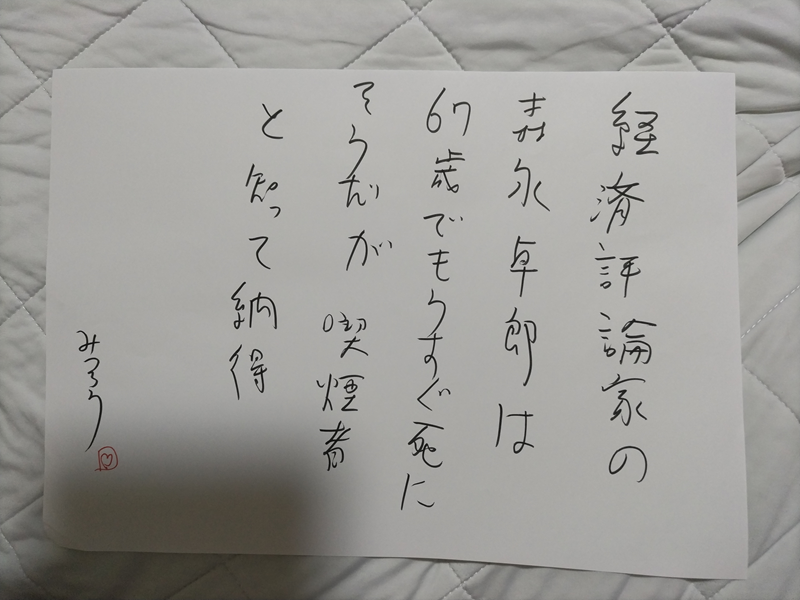 経済評論家の
森永卓郎は
67歳でもうすぐ死に
そうだが 喫煙者
と知って納得
みつろう